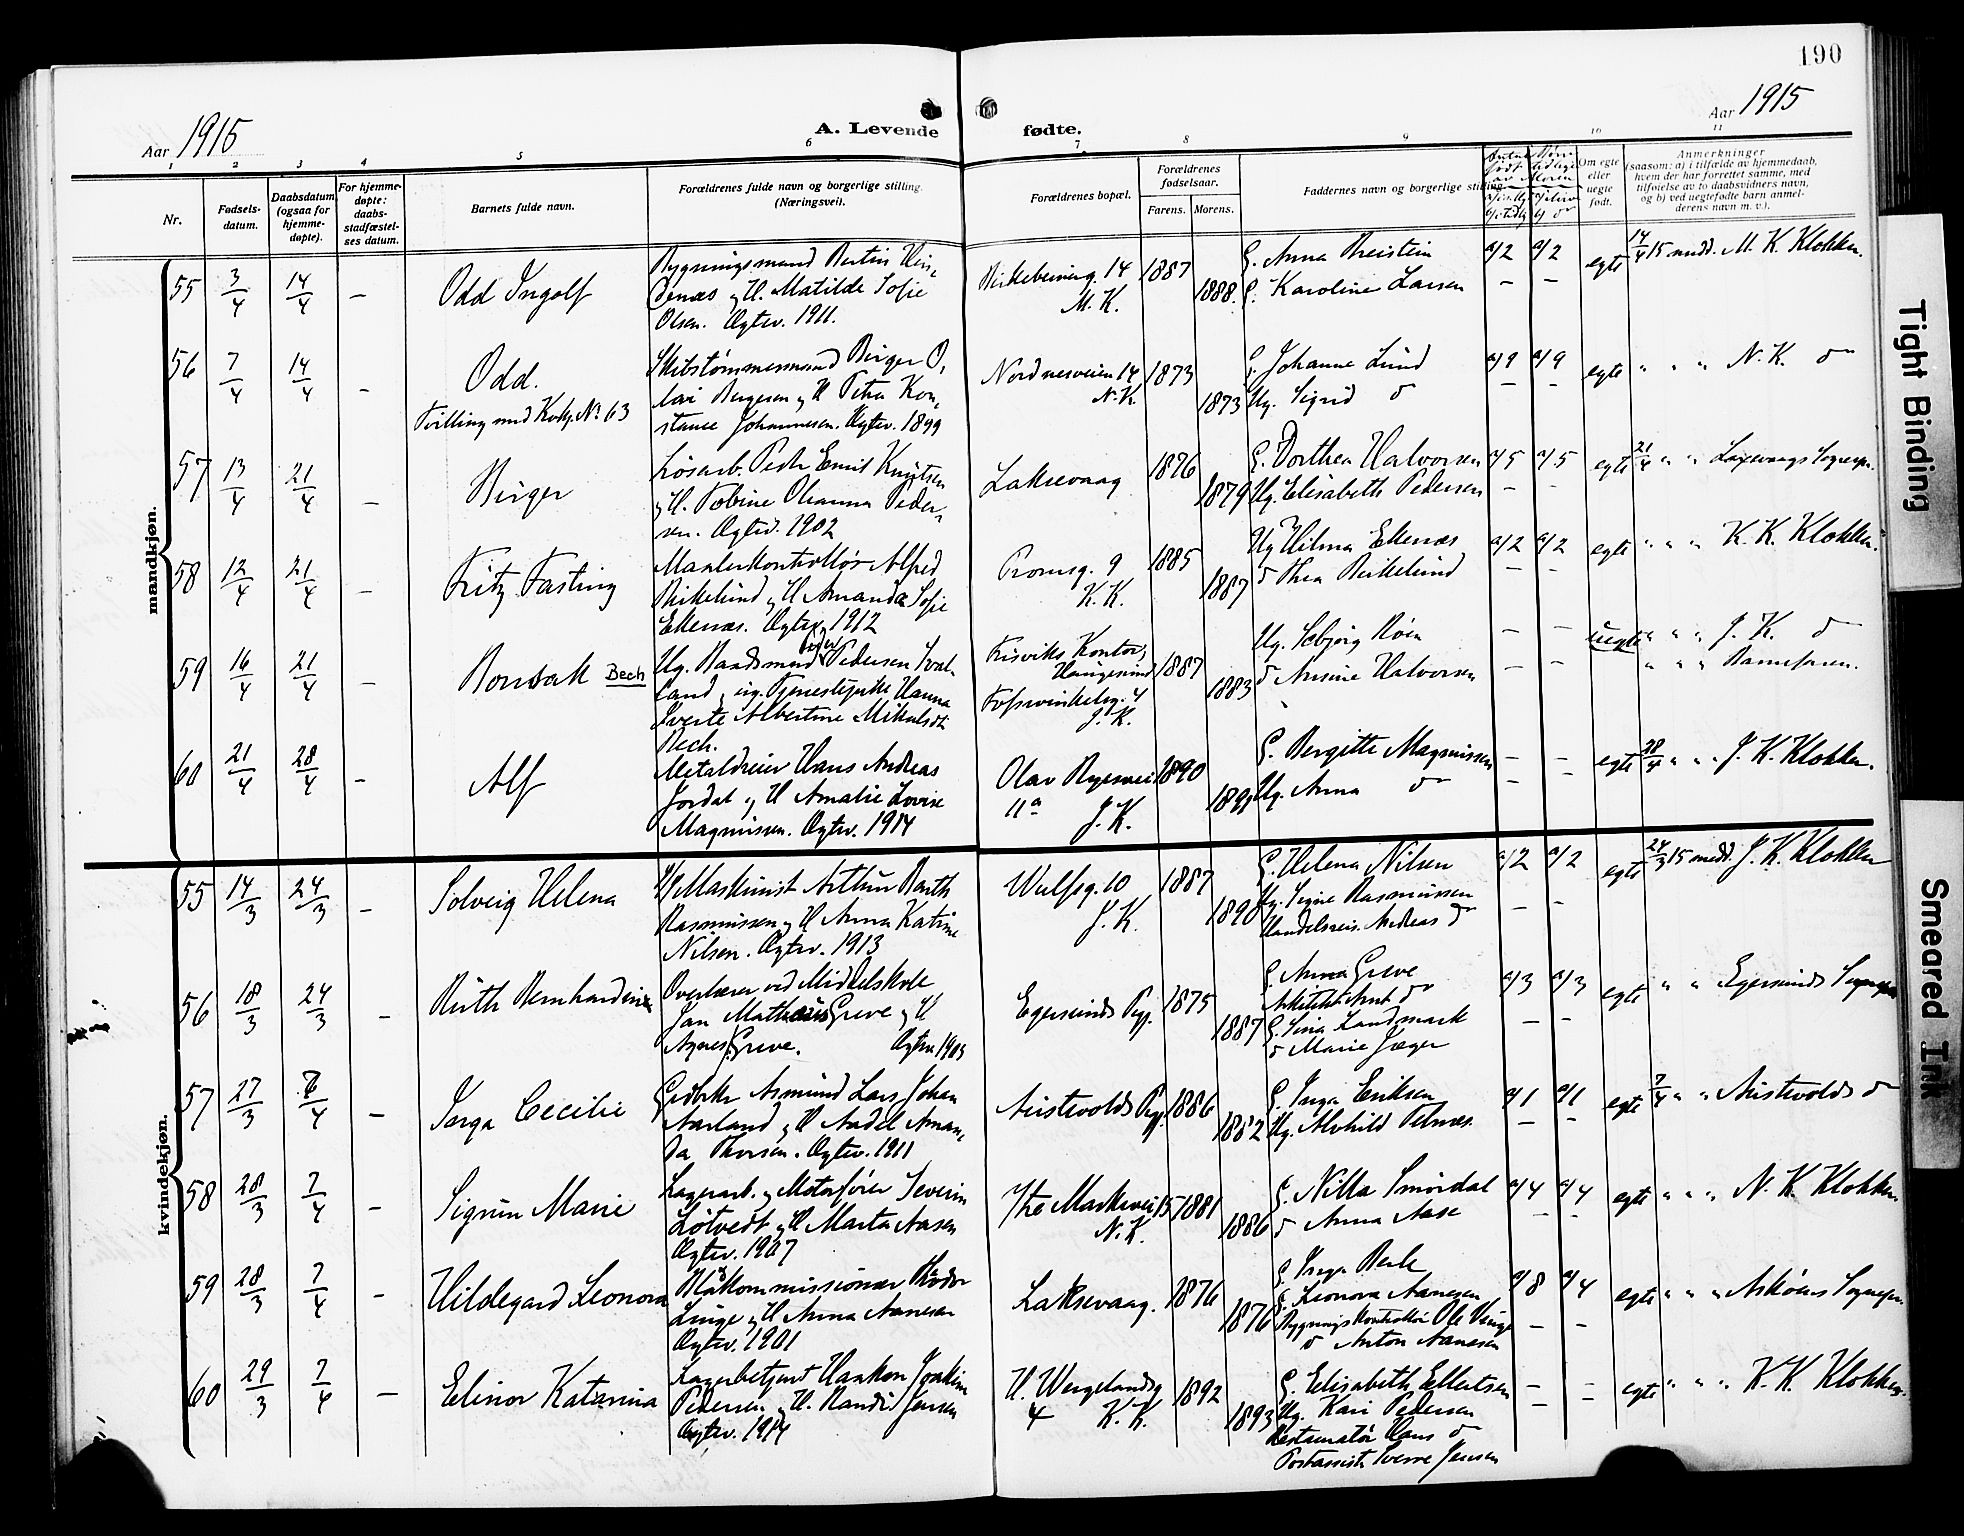 190
Aar 1915
A. Levende
fødte.
Aar 1915
1 2 3 4 5 6 7 8 9 10 11
Nr.
Fødsels-
datum.
Daabsdatum
(ogsaa for
hjemme-
døpte).
For hjemme-
døpte:
daabs-
stadfæstel-
ses datum.
Barnets fulde navn.
Forældrenes fulde navn og borgerlige stilling.
(Næringsvei).
Forældrenes bopæl.
Forældrenes
fødselsaar.
Farens. Morens.
Faddernes navn og borgerlige stilling.
Om egte
eller
uegte
født.
Anmerkninger
(saasom: a) i tilfælde av hjemmedaab,
hvem der har forrettet samme, med
tilføielse av to daabsvidners navn,
og b) ved uegtefødte barn anmel-
derens navn m. v.).
mandkjøn.
55 3/4 14/4 – Odd Ingolf
Bygningsmand Bertin
og H. Matilde Sofie
Olsen. Egtev. 1911.
Birkebeinerg. 14
M. K.
1887 1888.
G. Anna
G. Karoline Larsen
a/2 a/2 egte 14/4 15 medd. M. K. Klokker.
56 7/4 14/4 – Odd.
Tvilling med Kvkj. No. 63
Skibstømmermand Birger O-
lai Bergesen og H Petra Kon-
stance Johannesen. Egtev. 1899
Nordnesveien 14
N. K.
1873 1873
G. Johanne Lund
Ug. Sigrid do
a/9 a/9 egte " " " N. K. do
57 13/4 21/4 – Birger
Løsarb. Peder Emil Knutsen
og H. Tobine Oleanna Peder-
sen. Egtev. 1902
Laksevaag
1876 1879
G. Dorthea Halvorsen
Ug. Elisabeth Pedersen
a/5 a/5 egte 21/4 " " Laxevaags Sognepr.
58 12/4 21/4 – Fritz Fasting
Maalerkontrollør Alfred
Birkelund og H Amanda Sofie
Ekenæs. Egtev. 1912
Tromsg. 9
K. K.
1885 1887
Ug Hilma Ekenæs
do Thea Birkelund
a/2 a/2 egte " " " K. K. Klokker.
59 16/4 21/4 – Bonsak Bech
Ug. Baadsmand Peder Pedersen
land og ug. Tjenestepike Hanna
Sverte Albertine Mikalsdt.
Bech.
Risviks Kontor,
Haugesund
Fosswinkelsg. 4
J. K.
1887 1883
Ug. Solbjørg Røen
do Ansine Halvorsen
– – uegte " " " J. K. do
" " " Barnefaren.
60 21/4 28/4 – Alf
Metaldreier Hans Andreas
Jordal og H Amalie Lovise
Magnussen. Egtev. 1914
Olav Ryesvei
11a J. K.
1890 1891
G. Bergitte Magnussen
Ug. Anna do
– – egte 28/4 " " J. K. Klokker.
kvindekjøn.
55 14/3 24/3 – Solveig Helena
Maskinist Arthur Barth
Rasmussen og H Anna Katrine
Nilsen. Egtev. 1913
Wulfsg. 10
J. K.
1887 1890
G. Helena Nilsen
Ug. Signe Rasmussen
Handelsreis. Andreas do
a/2 a/2 egte 24/3 15 medd. J. K. Klokker
56 18/3 24/3 – Ruth Bernhardine
Overlærer ved Middelskole
Jan Mathæus Greve og H
Agnes Greve. Egtev. 1903
Egersunds Pgj.
1875 1887
G. Anna Greve
Arkitekt Arnt do
G. Sina Landmark
do Marie Jæger
a/3 a/3 egte " " Egersunds Sognepr.
57 27/3 7/4 – Inga Cecilie
Gaardbr. Asmund Lars Johan
Aarland og H Aadel Aman-
da Thorsen. Egtev. 1911
Austevolds Pgj.
1886 1882
G. Inga Eriksen
Ug. Alvhild Telnæs.
a/1 a/1 egte 7/4 " " Austevolds do
58 28/3 7/4 – Sigrun Marie
Lagerarb. og Motorfører Severin
Løtvedt og H Marta Aasen
Egtev. 1907
Ytre Markevei 15
N. K.
1881 1886
G. Nilla Smørdal
do Anna Aase
a/4 a/4 egte " " " N. K. Klokker.
59 28/3 7/4 – Hildegard Leonora
kommissionær
Linge og H Anna Aanesen
Egtev. 1901
Laksevaag.
1876 1876
G. Inga Berle
G. Leonora Aanesen
Bygningskontrollør Ole
do Anton Aanesen
a/8 a/4 egte " " " Askøens Sognepr.
60 29/3 7/4 – Elinor Katarina
Lagerbetjent Haakon Joakim
Pedersen og H. Randi Jensen
Egtev. 1914
H. Wergelandsg
4 K. K.
1892 1893
G. Elisabeth Ellertsen
Ug. Kari Pedersen
Restauratør Hans do
Postassist. Sverre Jensen
– – egte " " " K. K. Klokker.
Tight Binding
Smeared Ink